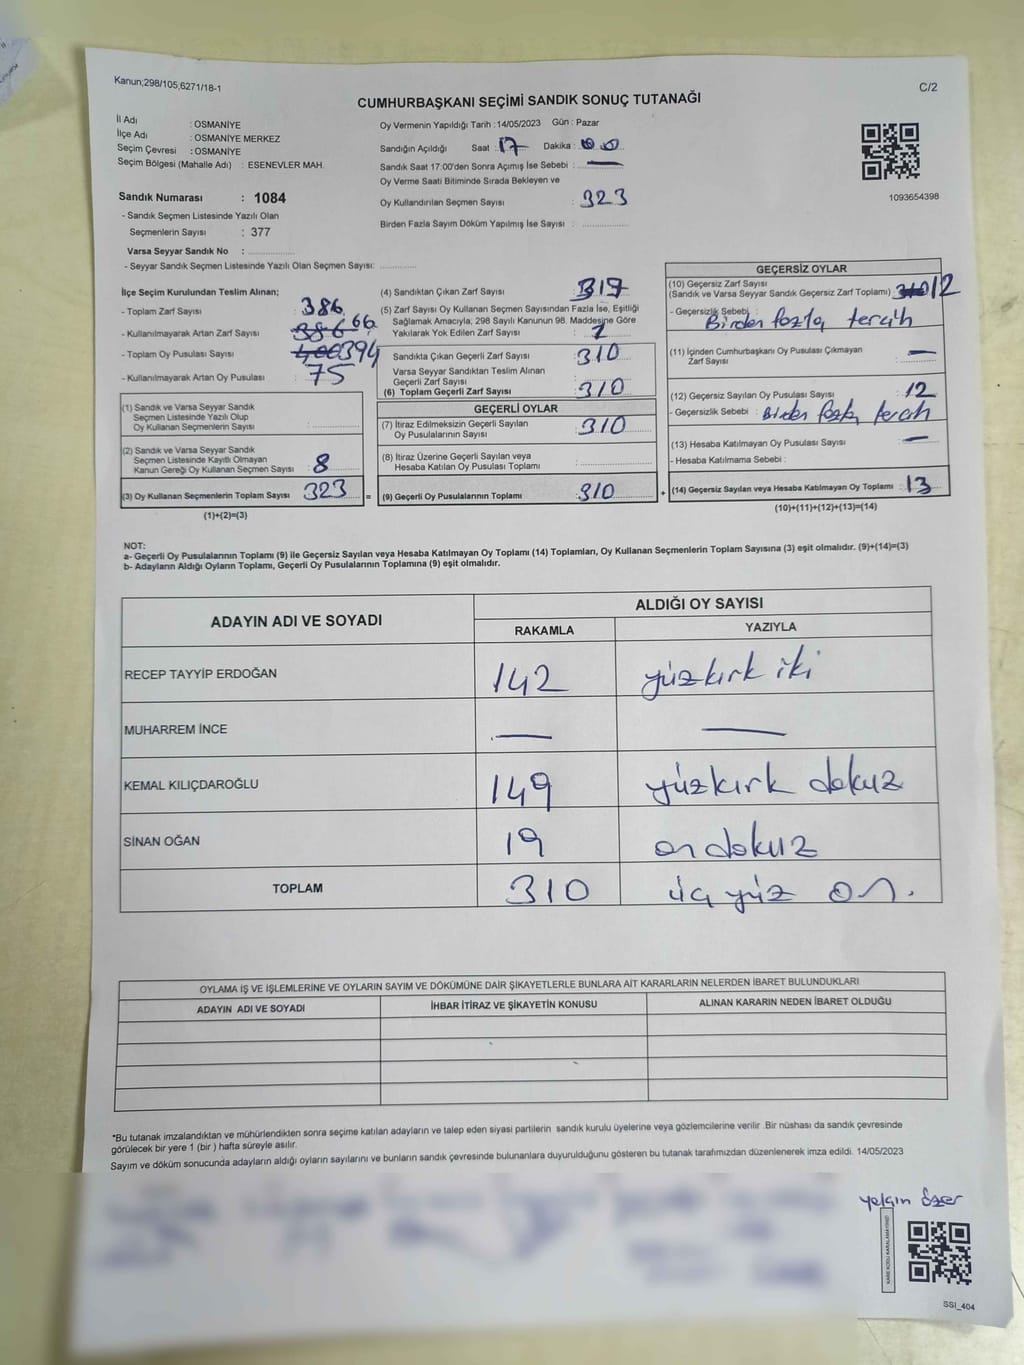 Kanun;298/105;6271/18-1
C/2
CUMHURBAŞKANI SEÇİMİ SANDIK SONUÇ TUTANAĞI
İl Adı : OSMANİYE
İlçe Adı : OSMANİYE MERKEZ
Seçim Çevresi : OSMANİYE
Seçim Bölgesi (Mahalle Adı) : ESENEVLER MAH.
Sandık Numarası : 1084
- Sandık Seçmen Listesinde Yazılı Olan
Seçmenlerin Sayısı : 377
Varsa Seyyar Sandık No :
- Seyyar Sandık Seçmen Listesinde Yazılı Olan Seçmen Sayısı:
Oy Vermenin Yapıldığı Tarih :14/05/2023 Gün : Pazar
Sandığın Açıldığı Saat : 17 Dakika : 00
Sandık Saat 17:00'den Sonra Açımış İse Sebebi : —
Oy Verme Saati Bitiminde Sırada Bekleyen ve
Oy Kullandırılan Seçmen Sayısı : 323
Birden Fazla Sayım Döküm Yapılmış İse Sayısı :
1093654398
İlçe Seçim Kurulundan Teslim Alınan;
- Toplam Zarf Sayısı : 386
- Kullanılmayarak Artan Zarf Sayısı : 386 66
- Toplam Oy Pusulası Sayısı : 400 394
- Kullanılmayarak Artan Oy Pusulası : 75
(1) Sandık ve Varsa Seyyar Sandık
Seçmen Listesinde Yazılı Olup
Oy Kullanan Seçmenlerin Sayısı :
(2) Sandık ve Varsa Seyyar Sandık
Seçmen Listesinde Kayıtlı Olmayan
Kanun Gereği Oy Kullanan Seçmen Sayısı : 8
(3) Oy Kullanan Seçmenlerin Toplam Sayısı : 323 =
(1)+(2)=(3)
(4) Sandıktan Çıkan Zarf Sayısı : 317
(5) Zarf Sayısı Oy Kullanan Seçmen Sayısından Fazla İse, Eşitliği
Sağlamak Amacıyla; 298 Sayılı Kanunun 98. Maddesine Göre
Yakılarak Yok Edilen Zarf Sayısı :
Sandıkta Çıkan Geçerli Zarf Sayısı : 310
Varsa Seyyar Sandıktan Teslim Alınan
Geçerli Zarf Sayısı :
(6) Toplam Geçerli Zarf Sayısı : 310
GEÇERLİ OYLAR
(7) İtiraz Edilmeksizin Geçerli Sayılan
Oy Pusulalarının Sayısı : 310
(8) İtiraz Üzerine Geçerli Sayılan veya
Hesaba Katılan Oy Pusulası Toplamı :
(9) Geçerli Oy Pusulalarının Toplamı : 310 +
GEÇERSİZ OYLAR
(10) Geçersiz Zarf Sayısı
(Sandık ve Varsa Seyyar Sandık Geçersiz Zarf Toplamı) : 310 12
- Geçersizlik Sebebi : Birden fazla tercih
(11) İçinden Cumhurbaşkanı Oy Pusulası Çıkmayan
Zarf Sayısı : —
(12) Geçersiz Sayılan Oy Pusulası Sayısı : 12
- Geçersizlik Sebebi : Birden fazla tercih
(13) Hesaba Katılmayan Oy Pusulası Sayısı : —
- Hesaba Katılmama Sebebi :
(14) Geçersiz Sayılan veya Hesaba Katılmayan Oy Toplamı : 13
(10)+(11)+(12)+(13)=(14)
NOT:
a- Geçerli Oy Pusulalarının Toplamı (9) ile Geçersiz Sayılan veya Hesaba Katılmayan Oy Toplamı (14) Toplamları, Oy Kullanan Seçmenlerin Toplam Sayısına (3) eşit olmalıdır. (9)+(14)=(3)
b- Adayların Aldığı Oyların Toplamı, Geçerli Oy Pusulalarının Toplamına (9) eşit olmalıdır.
ADAYIN ADI VE SOYADI ALDIĞI OY SAYISI
RAKAMLA YAZIYLA
RECEP TAYYİP ERDOĞAN 142 yüzkırk iki
MUHARREM İNCE — —
KEMAL KILIÇDAROĞLU 149 yüzkırk dokuz
SİNAN OĞAN 19 on dokuz
TOPLAM 310 üç yüz on.
OYLAMA İŞ VE İŞLEMLERİNE VE OYLARIN SAYIM VE DÖKÜMÜNE DAİR ŞİKAYETLERLE BUNLARA AİT KARARLARIN NELERDEN İBARET BULUNDUKLARI
ADAYIN ADI VE SOYADI İHBAR İTİRAZ VE ŞİKAYETİN KONUSU ALINAN KARARIN NEDEN İBARET OLDUĞU
*Bu tutanak imzalandıktan ve mühürlendikten sonra seçime katılan adayların ve talep eden siyasi partilerin sandık kurulu üyelerine veya gözlemcilerine verilir .Bir nüshası da sandık çevresinde
görülecek bir yere 1 (bir ) hafta süreyle asılır.
Sayım ve döküm sonucunda adayların aldığı oyların sayılarını ve bunların sandık çevresinde bulunanlara duyurulduğunu gösteren bu tutanak tarafımızdan düzenlenerek imza edildi. 14/05/2023
yalçın özer
KARE KODU KARALAMAYINIZ!
SSI_404